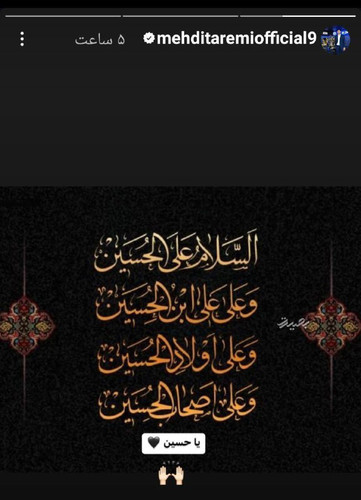 mehditaremiofficial9
۵ ساعت
اَلسَّلامُ عَلَی الحُسَیْن
وَعَلی عَلی ابْنِ الحُسَیْن
وَعَلی اَولادِ الحُسَیْن
وَعَلی اَصحابِ الحُسَیْن
یا حسین 🖤
🙌🏻